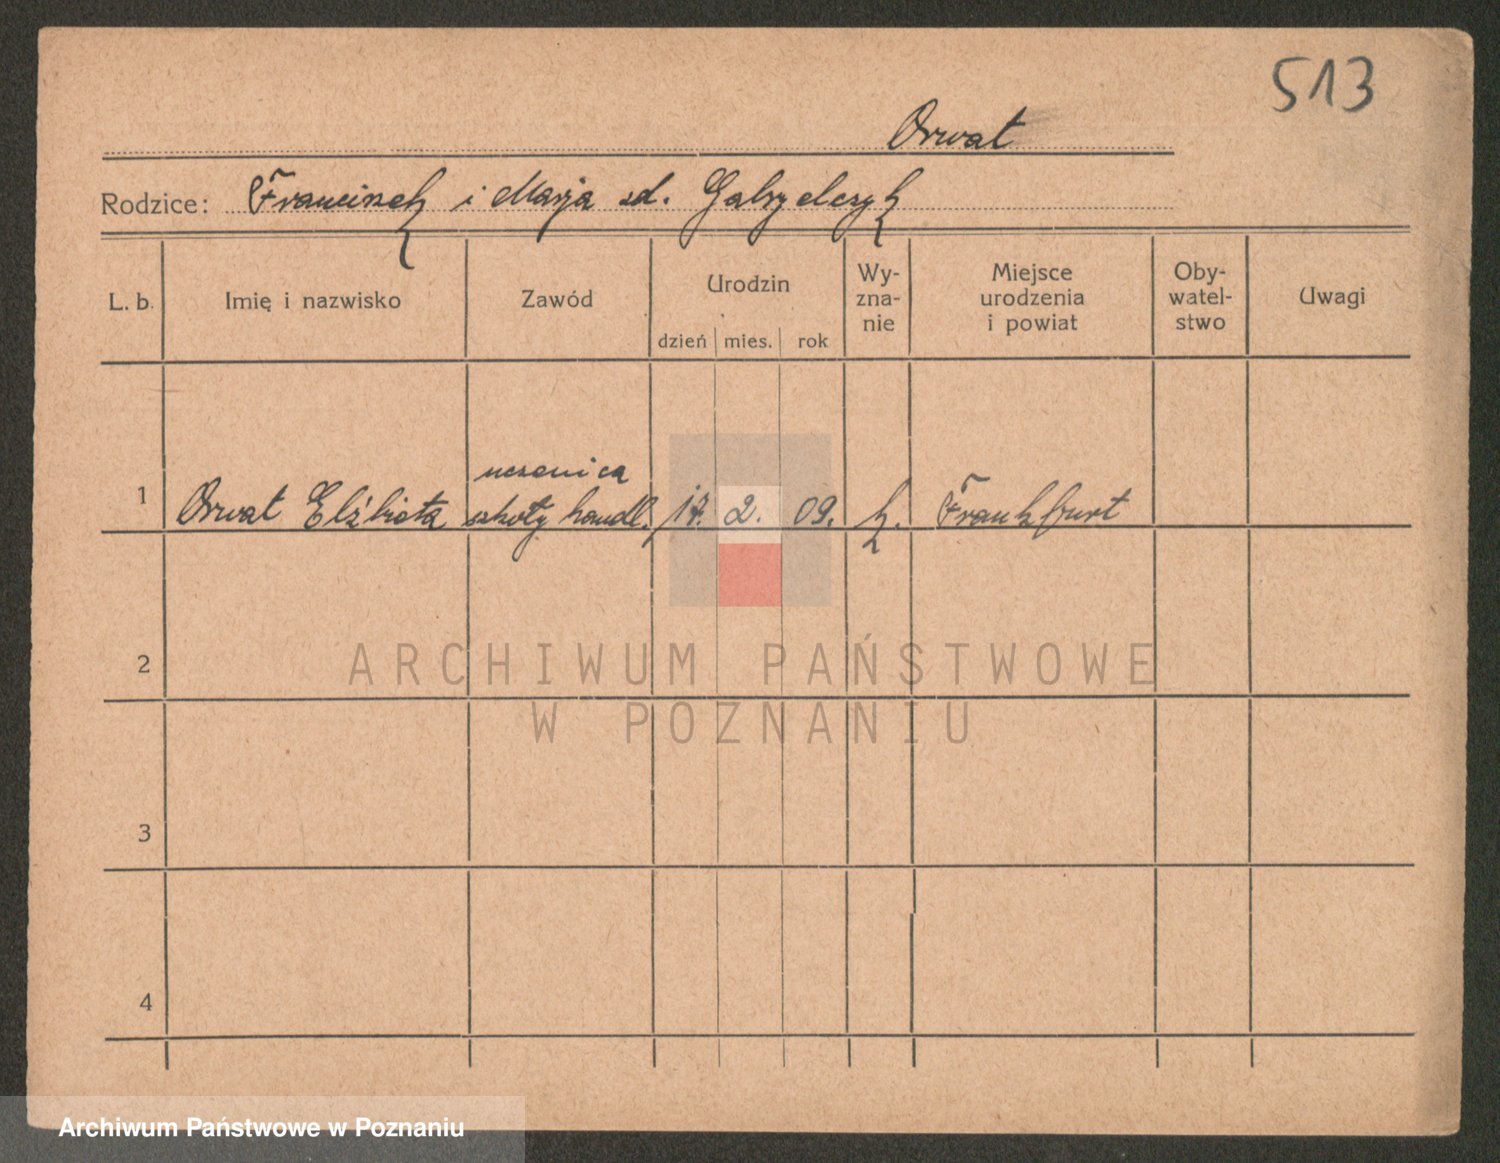 513
Orwat
Rodzice: Franciszek i Marja zd. Gabryelczyk
L. b.
Imię i nazwisko
Zawód
Urodzin
dzień mies. rok
Wy-
zna-
nie
Miejsce
urodzenia
i powiat
Oby-
watel-
stwo
Uwagi
uczenica
1 Orwat Elżbieta szkoły handl. 17. 2. 09. k. Frankfurt
2
ARCHIWUM PAŃSTWOWE
W POZNANIU
3
4
Archiwum Państwowe w Poznaniu